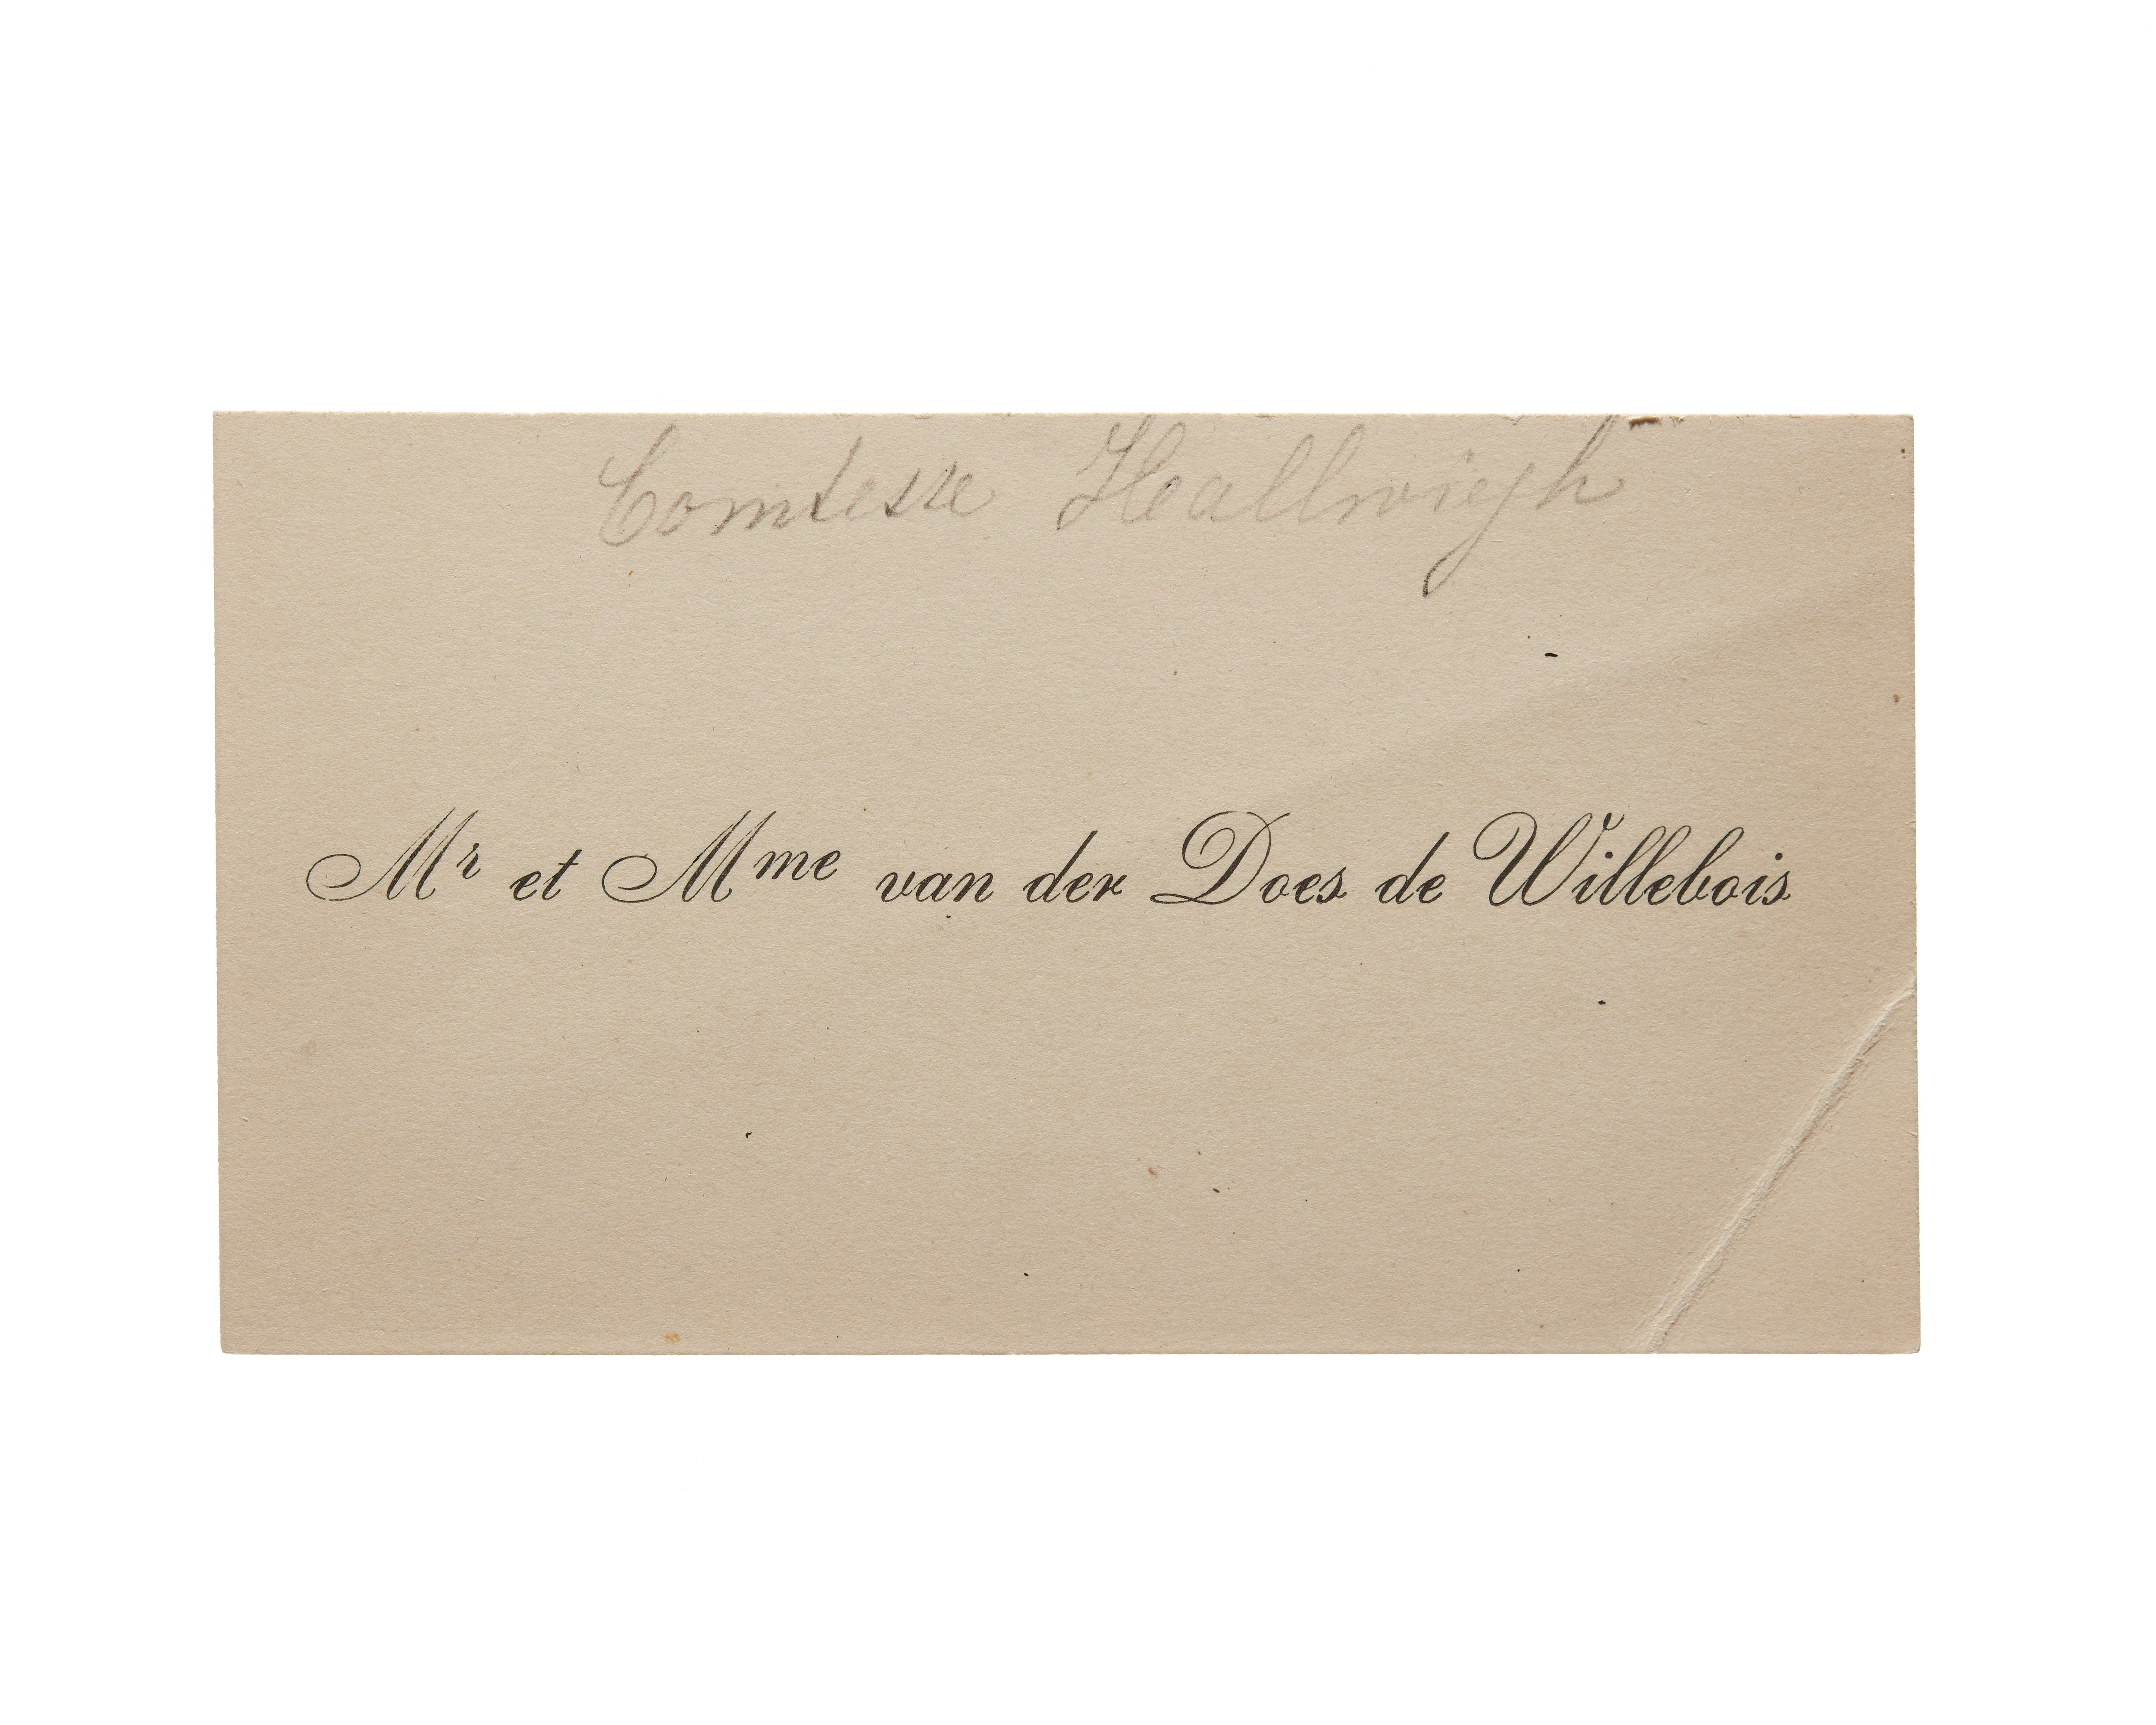 Comtesse Heallwiegh
Mr et Mme van der Does de Willebois